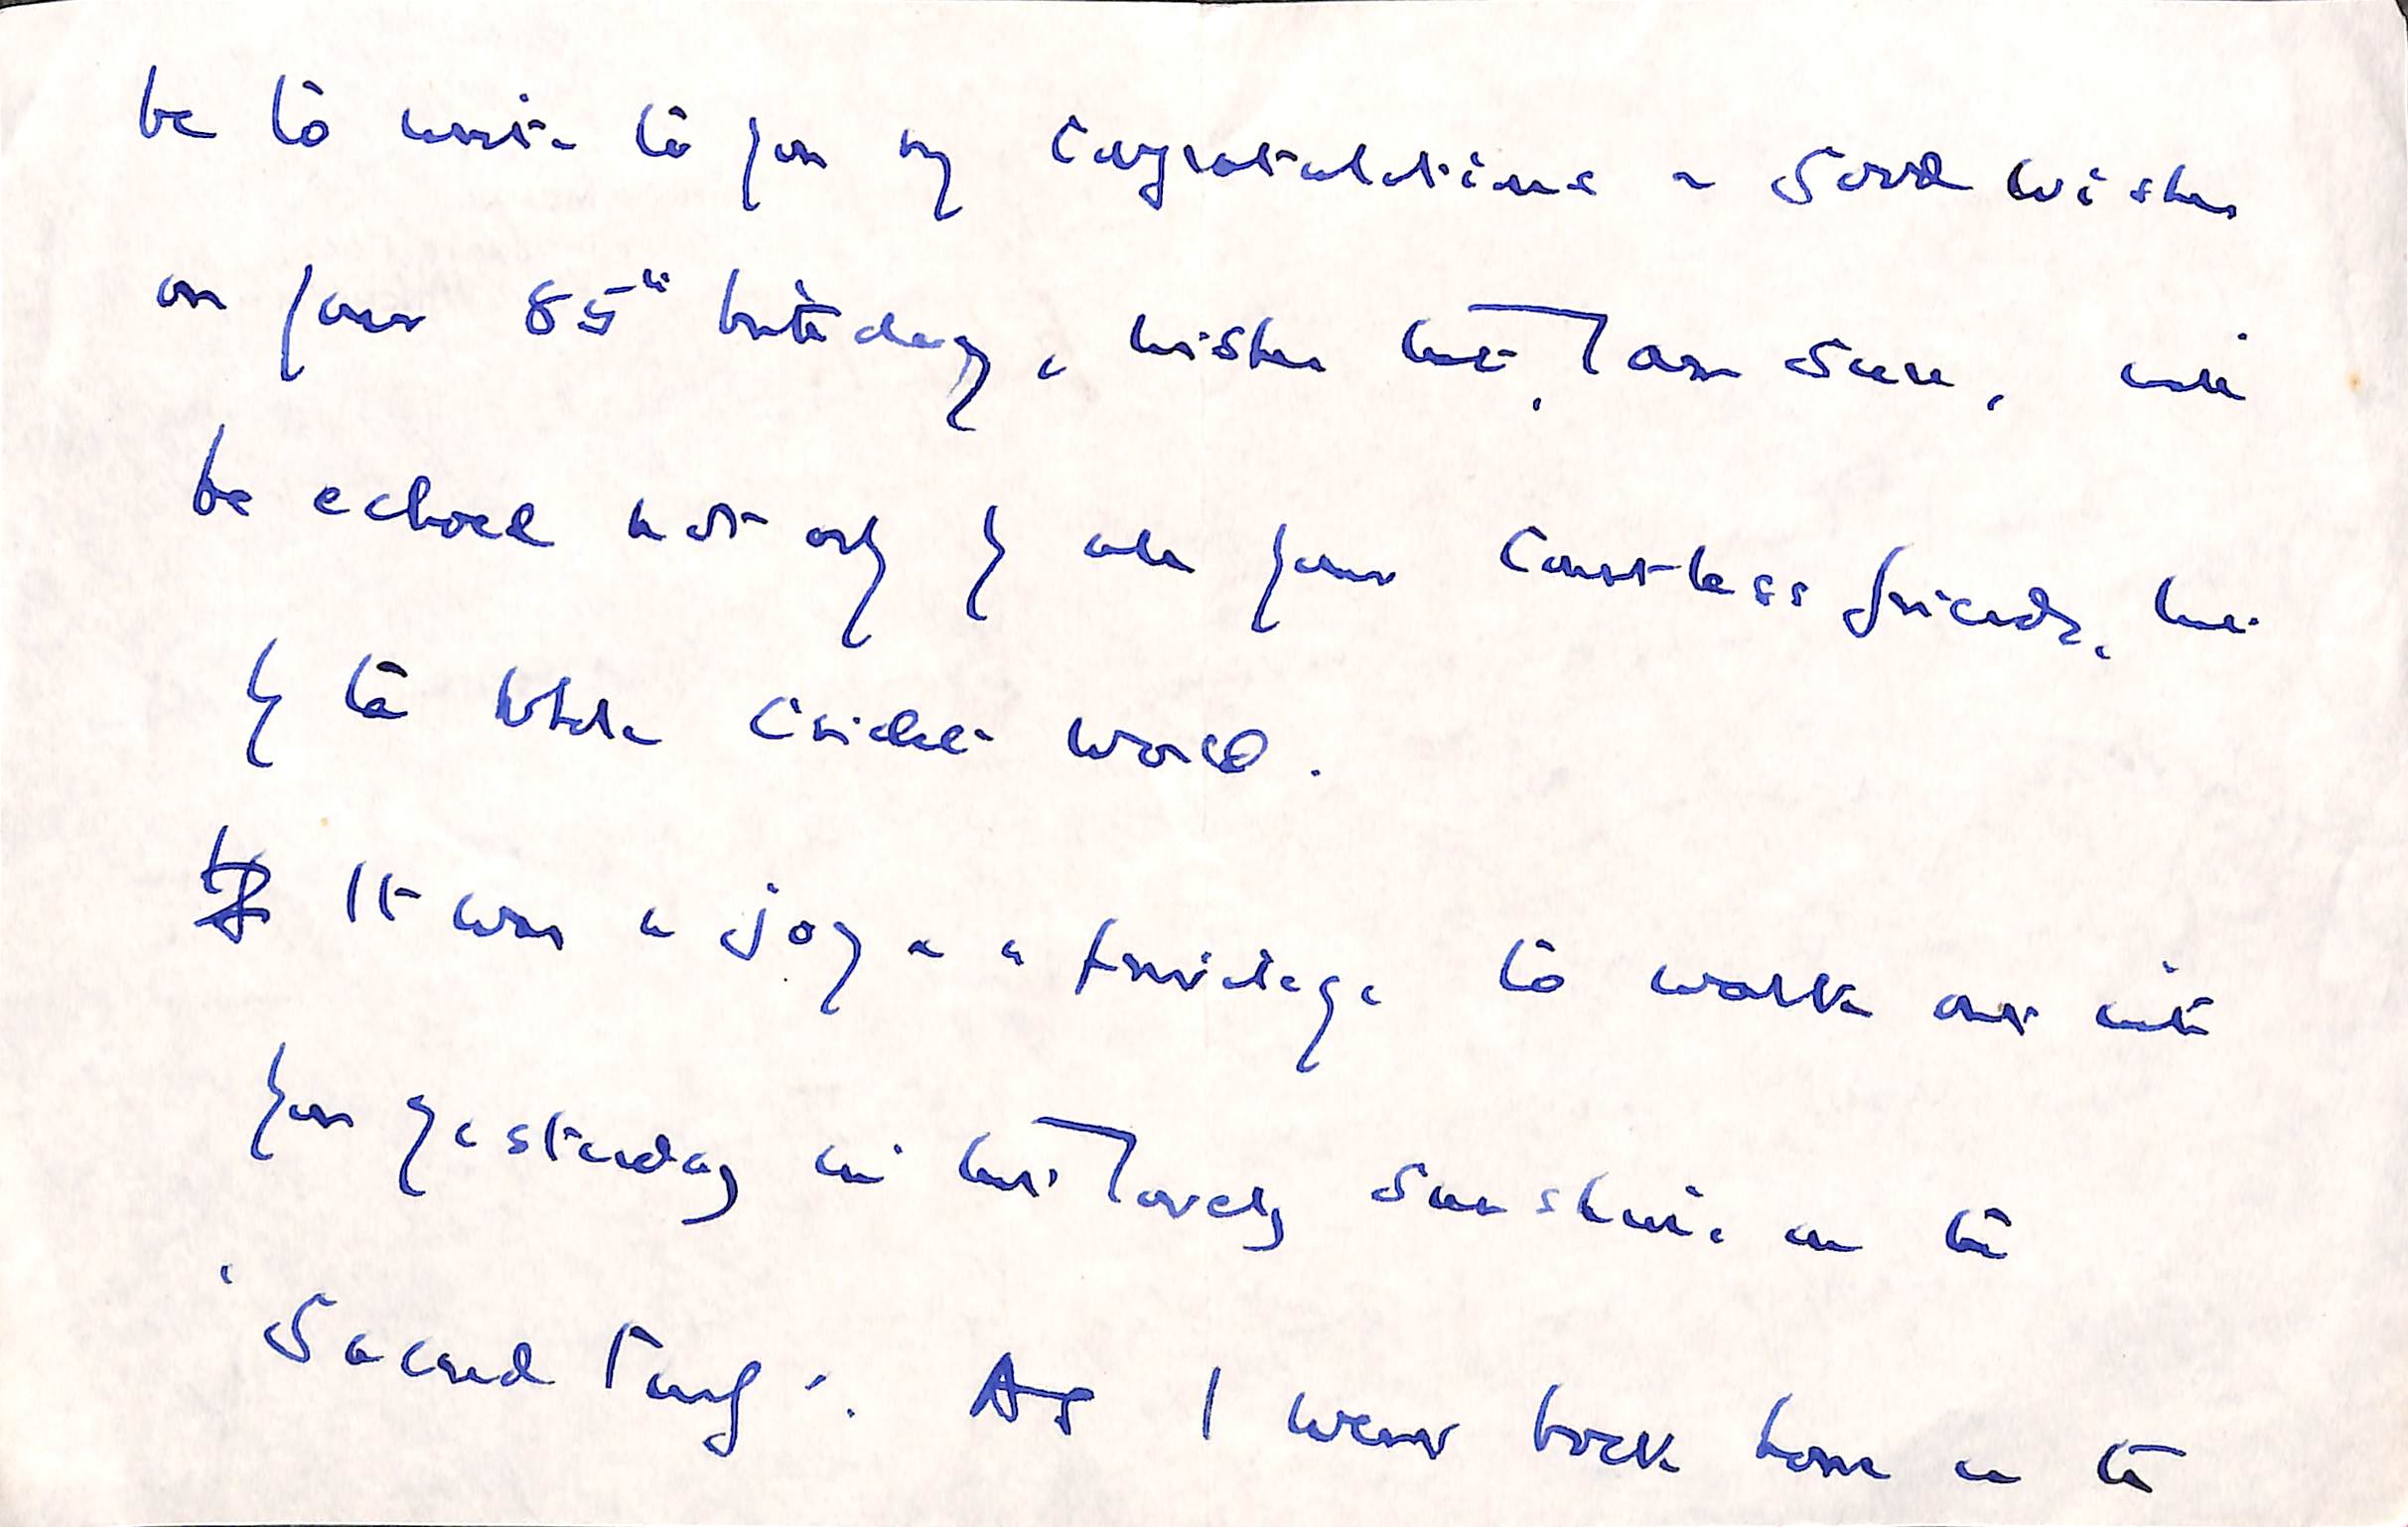 be to write to you my congratulations & good wishes
on your 85th birthday, wishes that, I am sure, will
be echoed not only by all your countless friends, but
by the whole cricket world.
It was a joy & a privilege to walk out with
you yesterday in that lovely sunshine on the
'Sacred Turf'. As I went back home on the